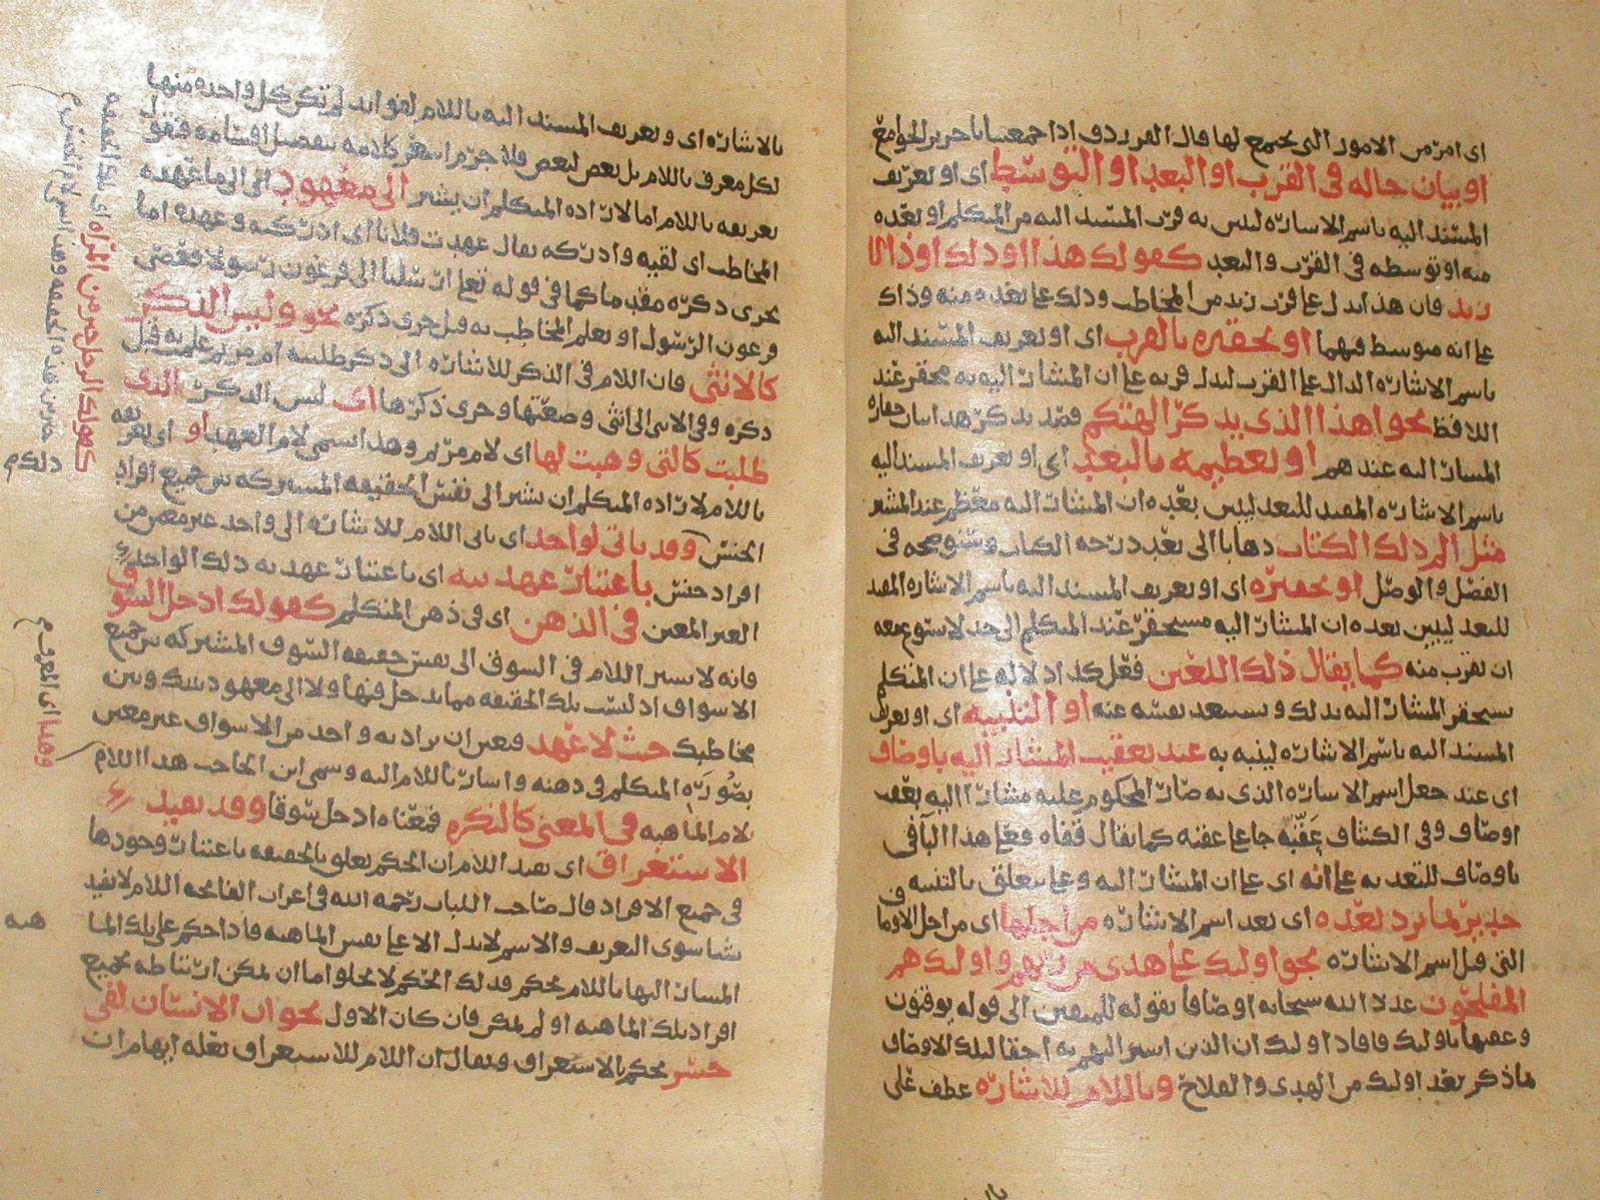 اى امر من الامور التى يجتمع لها قال الفرزدق اذا جمعتنا يا جرير الجوامع
او بيان حاله فى القرب او البعد او التوسط اى او تعريف
المسند اليه باسم الاشاره ليبين به قرب المسند اليه من المتكلم او بعده
منه او توسطه فى القرب والبعد كقولك هذا او ذلك او ذاك
زيد فان هذا يدل على قرب زيد من المخاطب وذلك على بعده منه وذاك
على انه متوسط فيهما او تحقيره بالقرب اى او تعريف المسند اليه
باسم الاشاره الدال على القرب ليدل قربه على ان المشار اليه به محقر عند
اللافظ نحو اهذا الذى يذكر الهتكم فصد يذكر هذا بيان حقاره
المشار اليه عندهم او تعظيمه بالبعد اى او تعريف المسند اليه
باسم الاشاره المفيد للبعد ليبين بعده ان المشار اليه معظم عند المشير
مثل الم ذلك الكتاب ذهابا الى بعد درجه الكتاب وسنوضحه فى
الفصل والوصل او تحقيره اى او تعريف المسند اليه باسم الاشاره المفيد
للبعد ليبين بعده ان المشار اليه مستحقر عند المتكلم الى حد لا يسوغ معه
ان يقرب منه كما يقال ذلك اللعين فعل كذا دلاله على ان المتكلم
يستحقر المشار اليه بذلك ويستبعد نفسه عنه او التنبيه اى او تعريف
المسند اليه باسم الاشاره لينبه به عند تعقيب المشار اليه باوصاف
اى عند جعل اسم الاشاره الذى به صار المحكوم عليه مشارا اليه بعقب
اوصاف وفى الكشاف عَقّبه جا على عقبه كما يقال قفاه فعلى هذا البا فى
باوصاف للتعديه على انه اى على ان المشار اليه وعلى يتعلق بالتنبيه
جدير بما يرد بعده اى بعد اسم الاشاره من اجلها اى من اجل الاوصاف
التى قبل اسم الاشاره نحو اولئك على هدى من ربهم واولئك هم
المفلحون عدد الله سبحانه اوصافا بقوله للمتقين الى قوله يوقنون
وعقبها باولئك فافاد اولئك ان الذين اشير اليهم به احقا لتلك الاوصاف
ماذكر بعد اولئك من الهدى والفلاح وباللام للاشاره عطف على
بالاشاره اى وتعريف المسند اليه باللام لفوائد لم تكن كل واحده منها
لكل معرف باللام بل بعض لبعض فلا جرم اشعر كلامه بتفصيل اقسامه فنقول
تعريفه باللام اما لاراده المتكلم ان يشير الى معهود اى الى ما عهده
المخاطب اى لقيه وادركه يقال عهدت فلانا اى ادركته وعهده اما
يجرى ذكره مقدما كما فى قوله تعا ارسلنا الى فرعون رسولا فعصى
فرعون الرسول او بعلم المخاطب به قبل جرى ذكره نحو وليس الذكر
كالانثى فان اللام فى الذكر للاشاره الى ذكر طلبته ام مريم عليه قبل
ذكره وفى الانثى الى انثى وضعتها وجرى ذكرها اى ليس الذكر الذى
طلبت كالتى وهبت لها اى لام مريم وهذا يسمى لام العهد او اى تعريفه
باللام لاراده المتكلم ان يشير الى نفس الحقيقه المشتركه بين جميع افراد
الجنس وقد ياتى لواحد اى ياتى اللام للاشاره الى واحد غير معين من
افراد جنس باعتبار عهديته اى باعتبار عهديه ذلك الواحد
الغير المعين فى الذهن اى فى ذهن المتكلم كقولك ادخل السوق
فانه لا يشير اللام فى السوق الى نفس حقيقه السوق المشتركه بين جميع
الاسواق اذ ليست تلك الحقيقه مما يدخل فيها ولا الى معهود بينك وبين
مخاطبك حيث لا عهد فتعين ان يراد به واحد من الاسواق غير معين
بصوره المتكلم فى ذهنه واشار باللام اليه وسمى ابن الحاجب هذا اللام
لام الماهيه فى المعنى كالنكره فمعناه ادخل سوقا وقد يفيد
الاستغراق اى يفيد اللام ان الحكم تعلق بالحقيقه باعتبار وجودها
فى جميع الافراد قال صاحب اللباب رحمه الله فى اعراب الفاتحه اللام لا يفيد
شيا سوى التعريف والاسم لا يدل الا على نفس الماهيه فاذا حكم على تلك الما
هيه
المشار اليها باللام بحكم فذلك الحكم لا يخلوا ما ان يمكن ارتباطه بجميع
افراد تلك الماهيه او لم يمكن فان كان الاول نحو ان الانسان لفى
خسر يحكم بالاستغراق ويقال ان اللام للاستغراق بعله ابهام ان
كقولك الرجل خير من المراه اى تلك الحقيقه
خير من هذه الحقيقه وهذا يسمى لام الجنس
وهذا اى المعرف